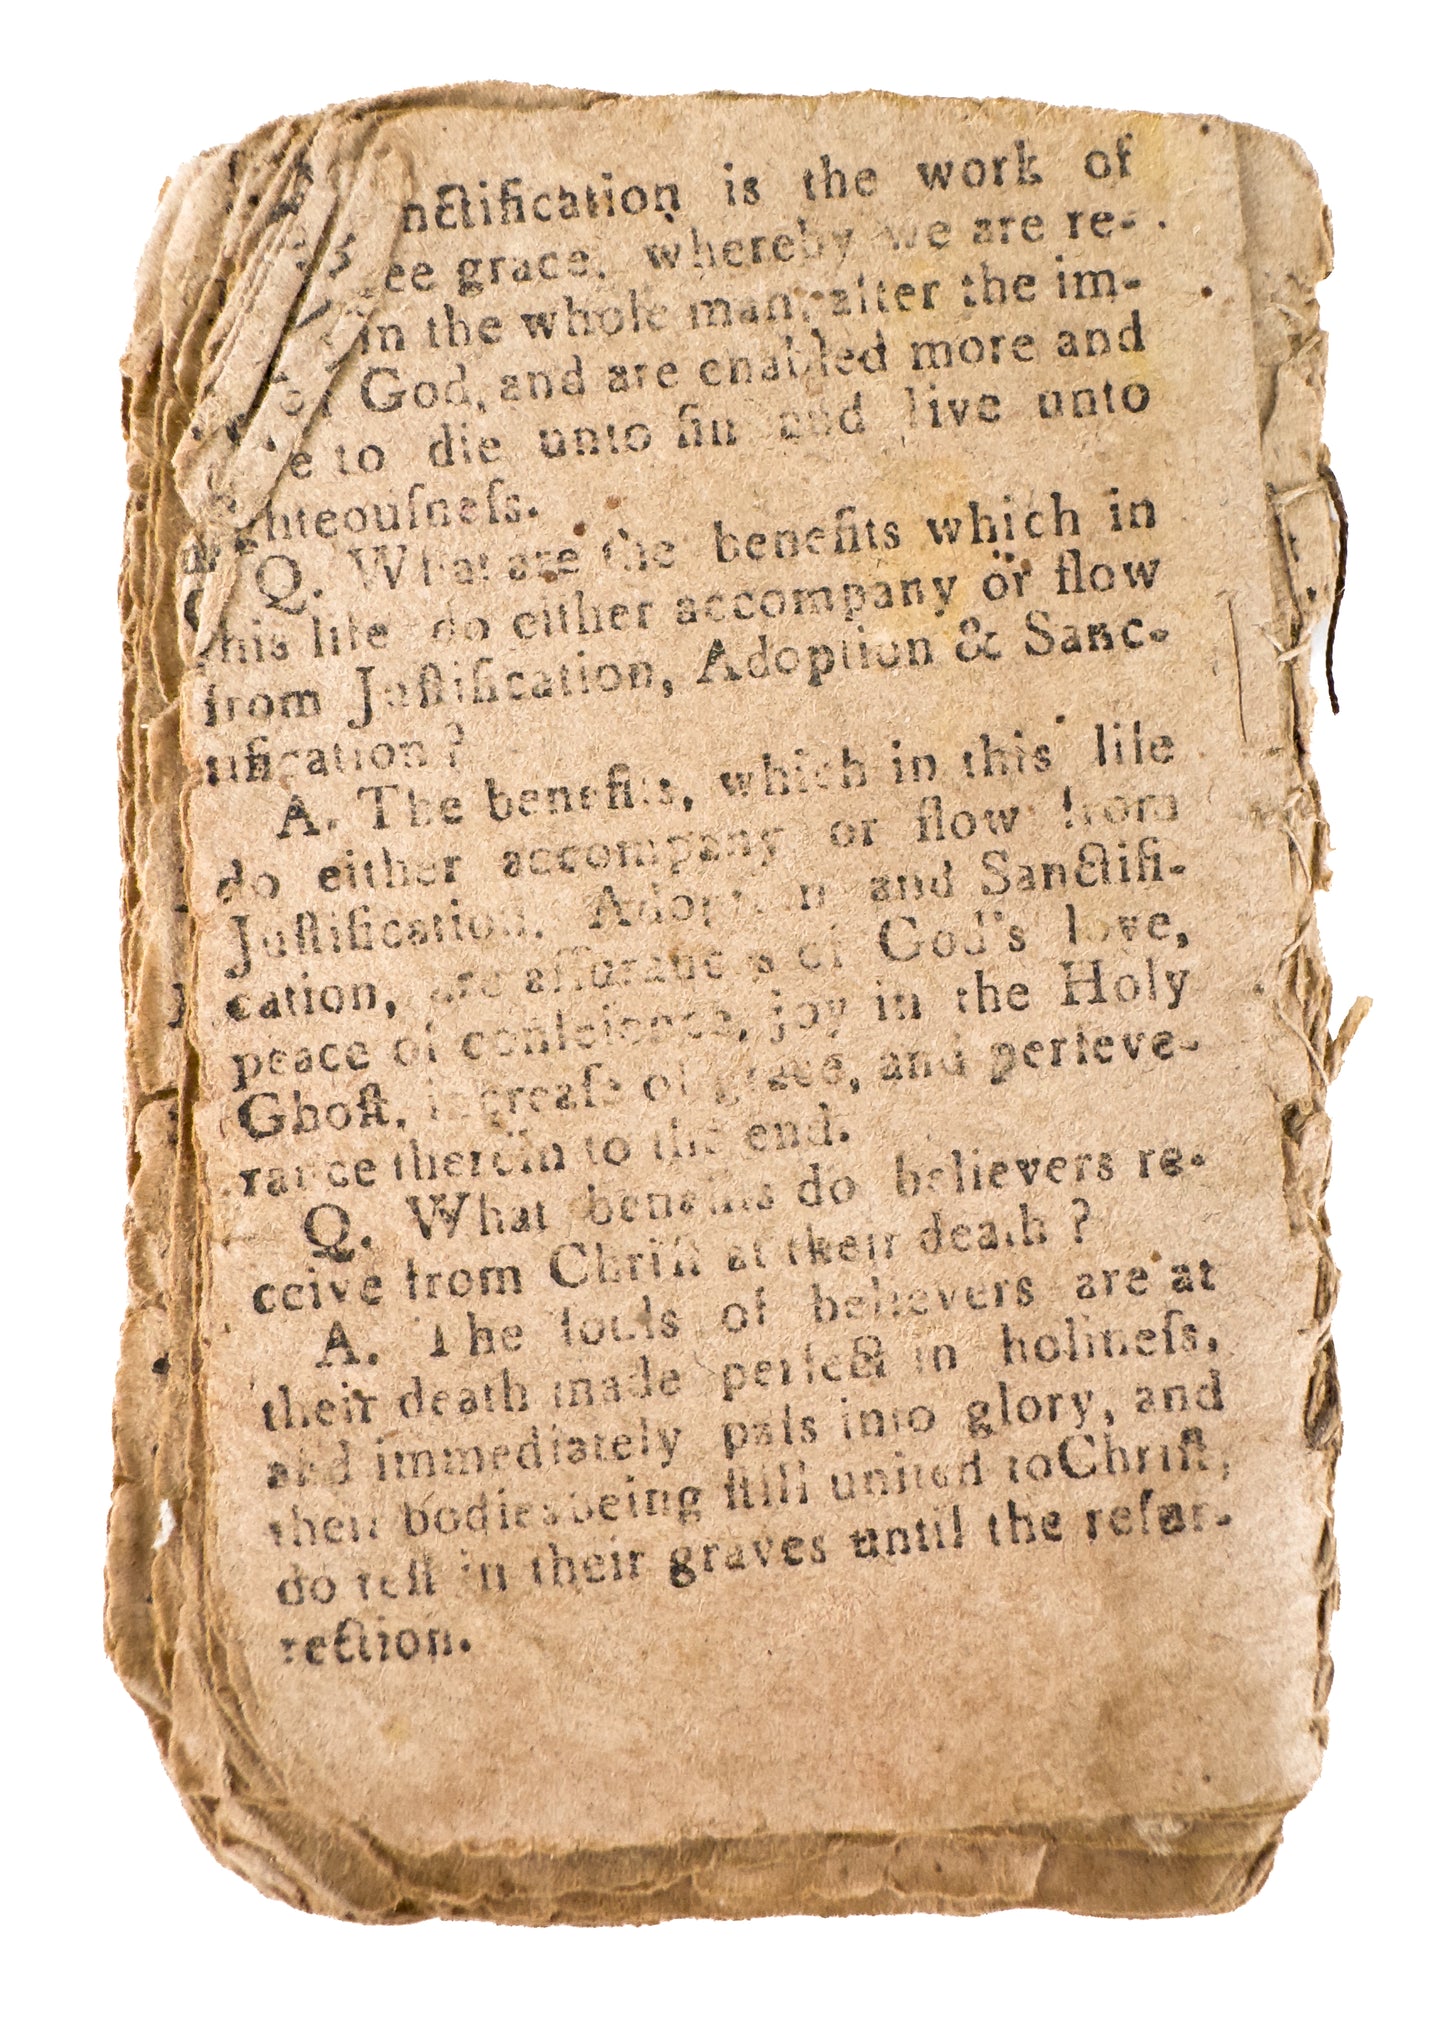 nctification is the work of
ee grace, whereby we are re-
in the whole man, after the im-
God, and are enabled more and
e to die unto ſin and live unto
ghteouſneſs.
Q. What are the benefits which in
this life do either accompany or flow
from Juſtification, Adoption & Sanc-
tification?
A. The benefits, which in this life
do either accompany or flow from
Juſtification, Adoption and Sanctifi-
cation, are aſſurance of God's love,
peace of conſcience, joy in the Holy
Ghoſt, increaſe of grace, and perſeve-
rance therein to the end.
Q. What benefits do believers re-
ceive from Chriſt at their death?
A. The ſouls of believers are at
their death made perfect in holineſs,
and immediately paſs into glory, and
their bodies being ſtill united to Chriſt,
do reſt in their graves until the reſur-
rection.